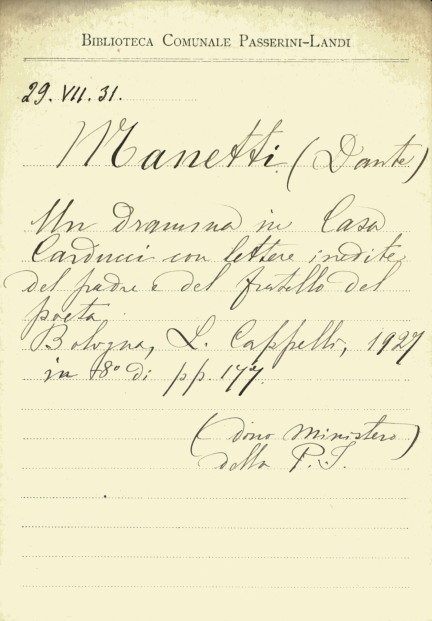 BIBLIOTECA COMUNALE PASSERINI-LANDI
29. VII. 31.
Manetti (Dante)
Un dramma in Casa
Carducci con lettere inedite
del padre e del fratello del
poeta
Bologna, L. Cappelli, 1927
in 8° di pp. 177.
(dono Ministero
della P.I.)